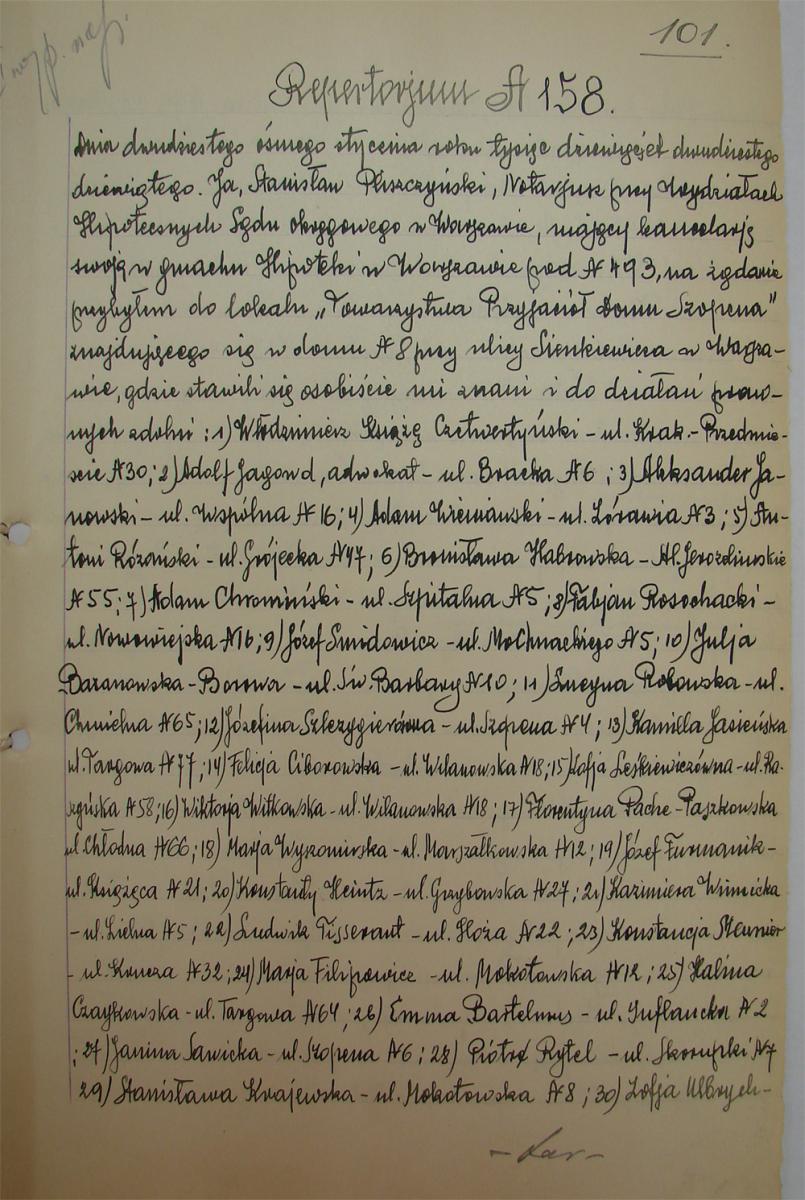 101.
Repertorjum № 158.
Dnia dwudziestego ósmego stycznia roku tysiąc dziewięćset dwudziestego
dziewiątego. Ja, Stanisław Pliszczyński, Notarjusz przy Wydziałach
Hipotecznych Sądu Okręgowego w Warszawie, mający kancelarję
swoją w gmachu Hipoteki w Warszawie pod № 493, na żądanie
przybyłem do lokalu „Towarzystwa Przyjaciół Domu Szopena"
znajdującego się w domu № 8 przy ulicy Sienkiewicza w Warsza-
wie, gdzie stawili się osobiście mi znani i do działań praw-
nych zdolni: 1) Włodzimierz Książę Czetwertyński - ul. Krak.-Przedmie-
ście № 30; 2) Adolf Jagowd, adwokat - ul. Bracka № 6; 3) Aleksander Ja-
nowski - ul. Wspólna № 16; 4) Adam Wieniawski - ul. Lórawia № 3; 5) An-
toni Różański - ul. Grójecka № 47; 6) Bronisława Habrowska - Al. Jerozolimskie
№ 55; 7) Adam Chromiński - ul. Szpitalna № 5; 8) Fabjan Rosochacki -
ul. Nowowiejska № 16; 9) Józef Smidowicz - ul. Mochnackiego № 5; 10) Julja
Baranowska-Borowa - ul. Św. Barbary № 10; 11) Lucyna Robowska - ul.
Chmielna № 65; 12) Józefina Szlezygierówna - ul. Szopena № 4; 13) Kamilla Jasieńska
ul. Targowa № 77; 14) Felicja Ciborowska - ul. Wilanowska № 18; 15) Zofja Leśkiewiczówna - ul. Ra-
szyńska № 58; 16) Wiktorja Witkowska - ul. Wilanowska № 18; 17) Florentyna Pache-Paszkowska
ul. Chłodna № 66; 18) Marja Wyszomirska - ul. Marszałkowska № 12; 19) Józef Furmanik -
ul. Książęca № 21; 20) Konstanty Heintz - ul. Grzybowska № 27; 21) Kazimiera Winnicka
- ul. Zielna № 5; 22) Ludwik Tisserant - ul. Hoża № 22; 23) Konstancja Meunier
- ul. Krucza № 32; 24) Marja Filipowicz - ul. Mokotowska № 12; 25) Halina
Czaykowska - ul. Targowa № 64; 26) Emma Bartelmus - ul. Inflancka № 2
; 27) Janina Sawicka - ul. Szopena № 6; 28) Piotr Rytel - ul. Skorupki № 7
29) Stanisława Krajewska - ul. Mokotowska № 8; 30) Zofja Ulbrych-